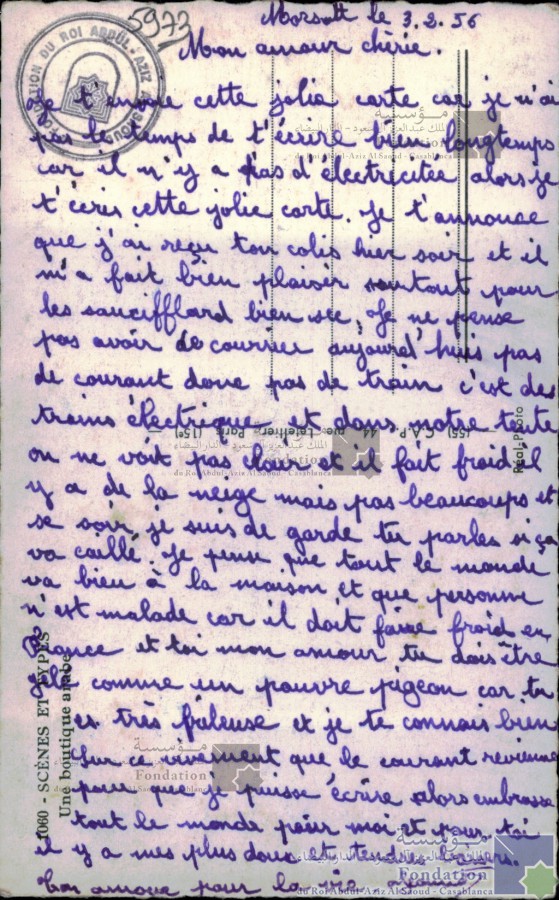 5973
Morsott le 3.2.56
Mon amour chérie.
Je t'envoie cette jolie carte car je n'ai
pas le temps de t'écrire bien longtemps
car il n'y a pas d'électricitée alors je
t'écris cette jolie carte. Je t'annonce
que j'ai reçu ton colis hier soir et il
m'a fait bien plaisir surtout pour
les sauciffland bien sec, Je ne pense
pas avoir de courrier aujourd'huis pas
de courant donc pas de train c'est des
trains électrique, et dans notre tente
on ne voit pas clair et il fait froid il
y a de la neige mais pas beaucoups et
se soir je suis de garde tu parles si ça
va caillé. Je pense que tout le monde
va bien à la maison et que personne
n'est malade car il doit faire froid en
France et toi mon amour tu dois être
comme un pauvre pigeon car tu
es très frileuse et je te connais bien
Sur ce vivement que le courant revienne
pour que je puisse écrire alors embrasse
tout le monde pour moi et pour toi
il y a mes plus doux et tendres baisers.
Ton amour pour la vie.
1060 - SCÈNES ET TYPES
Une boutique arabe
(55) C.A.P. 44, rue Letellier - Paris (15e)
Réal-Photo
FONDATION DU ROI ABDUL-AZIZ AL SAOUD
مؤسسة
الملك عبد العزيز آل سعود - الدار البيضاء
Fondation
du Roi Abdul-Aziz Al Saoud - Casablanca